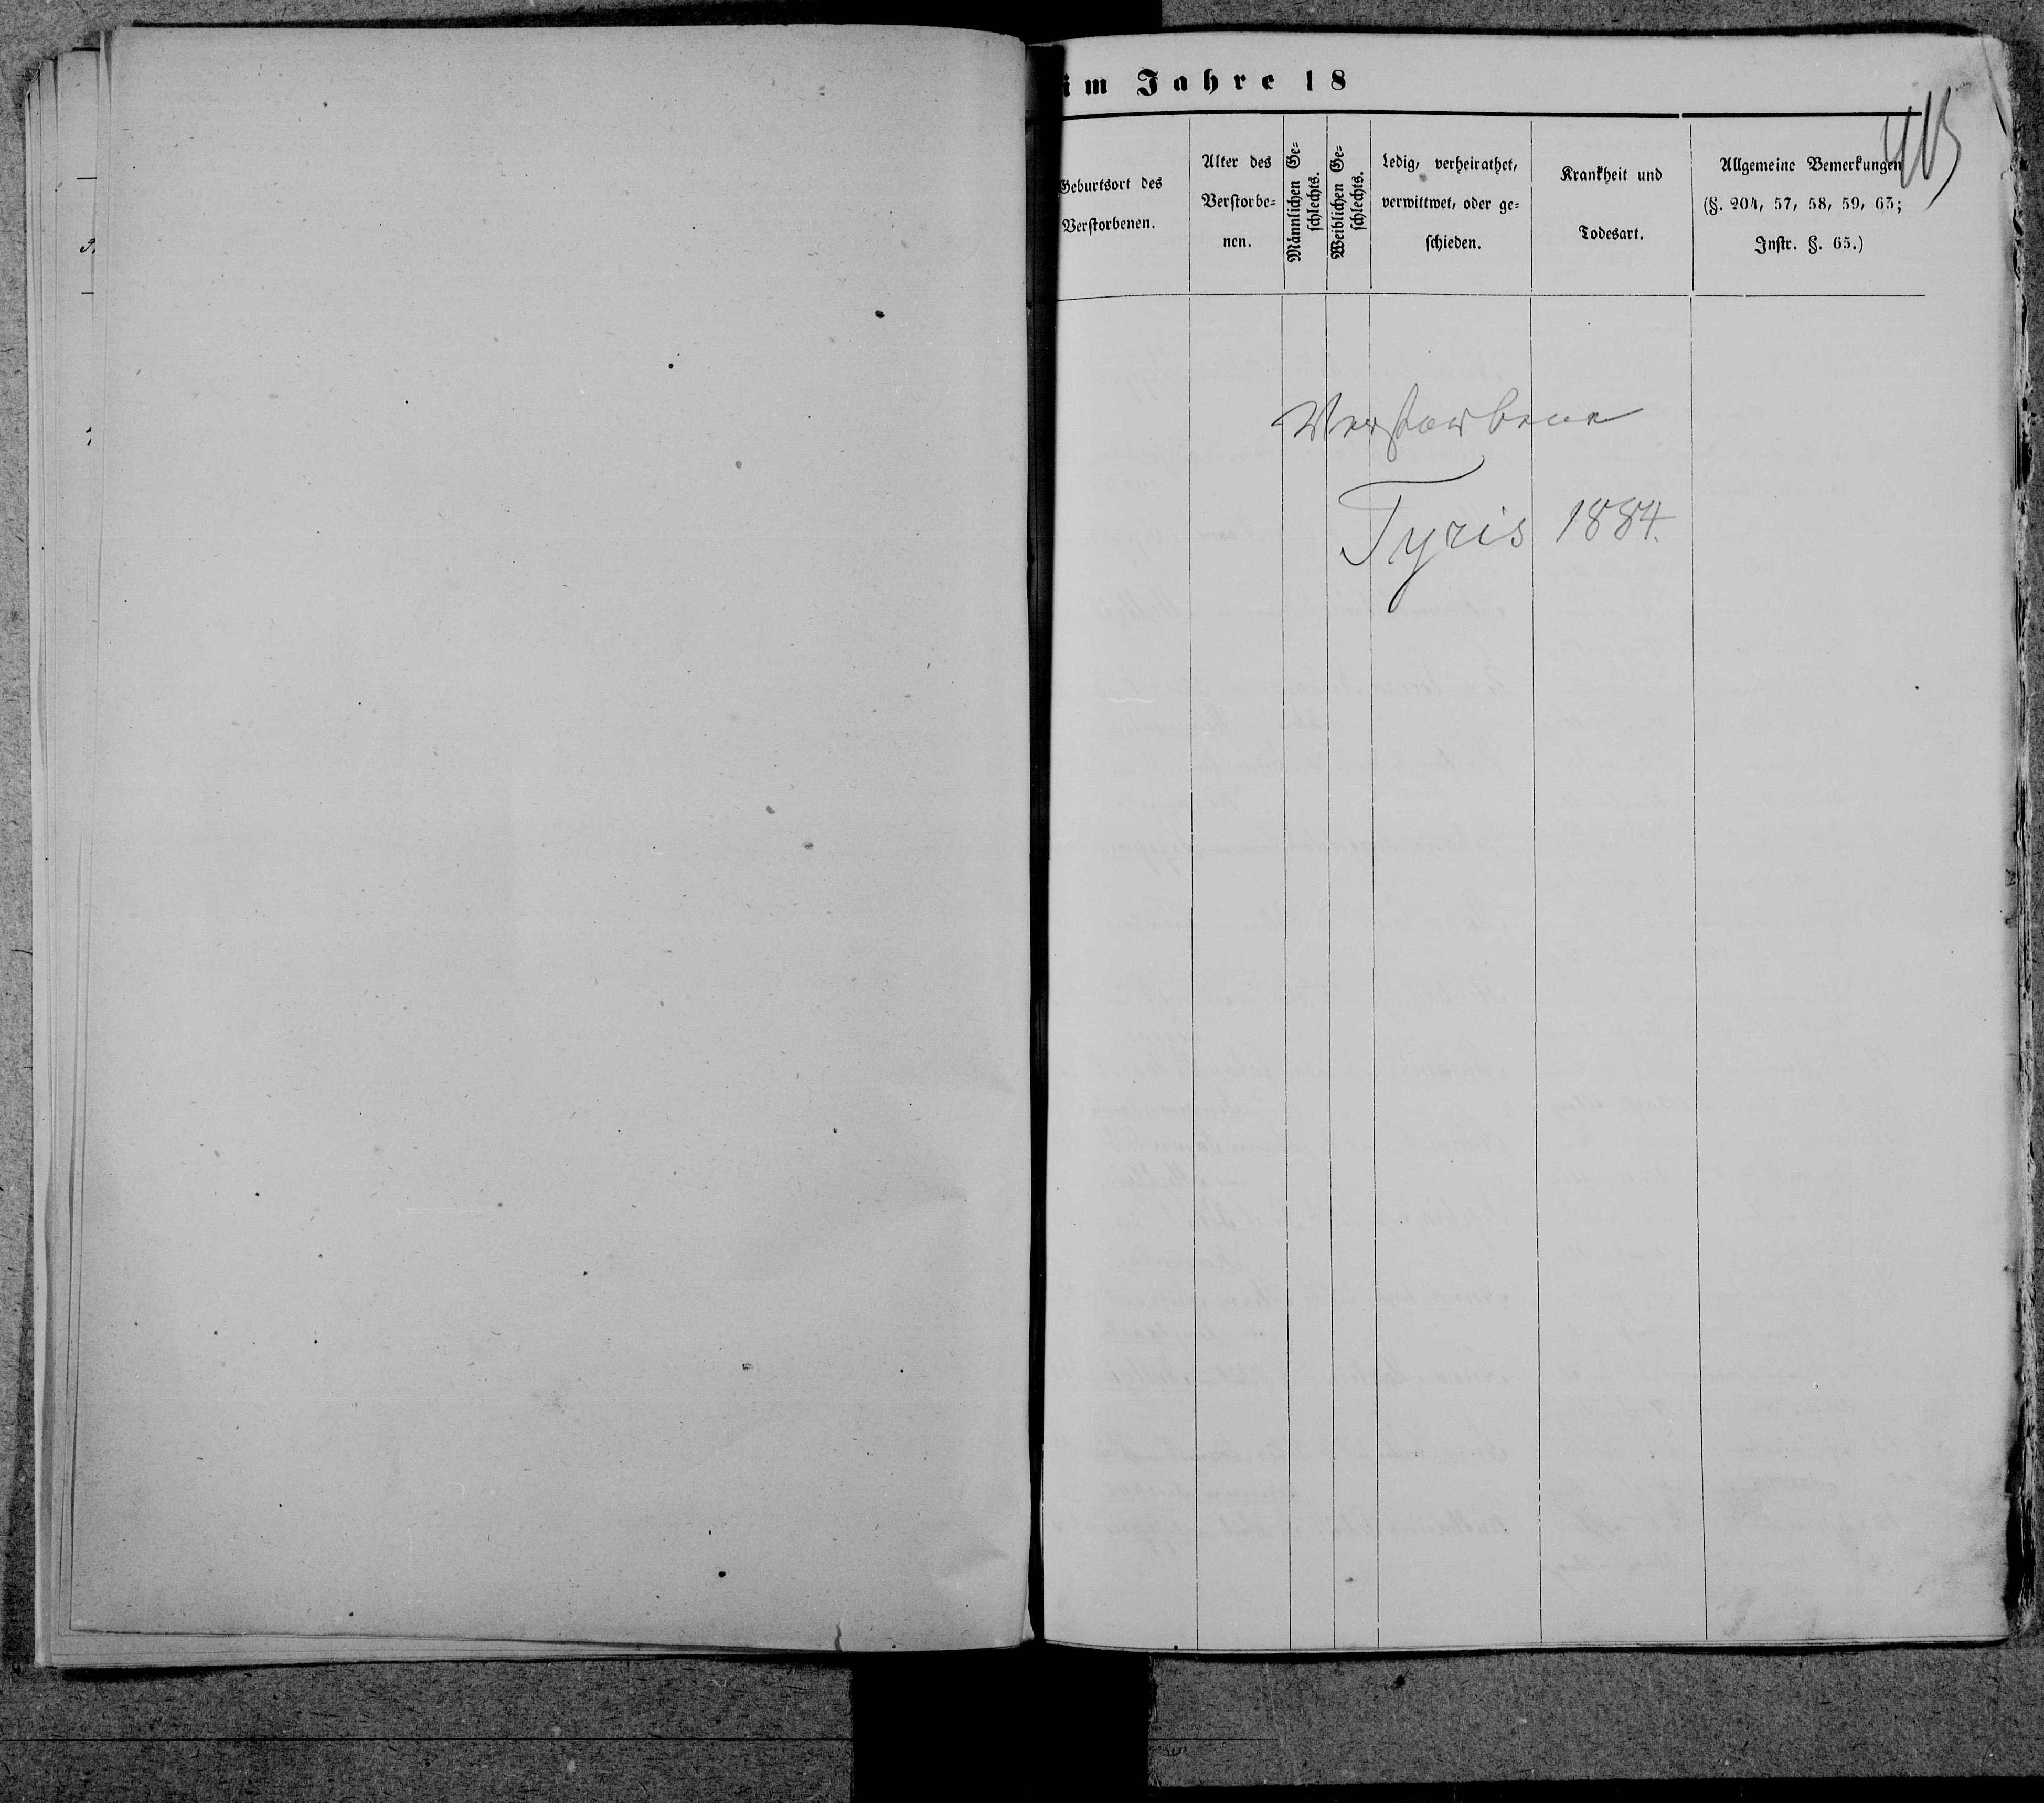 im Jahre 18
415
Geburtsort des
Verstorbenen.
Alter des
Verstorbe-
nen.
Männlichen Ge-
schlechts.
Weiblichen Ge-
schlechts.
Ledig, verheirathet,
verwittwet, oder ge-
schieden.
Krankheit und
Todesart.
Allgemeine Bemerkungen
(§. 204, 57, 58, 59, 63;
Instr. §. 65.)
Verstorbene
Tyris 1884.